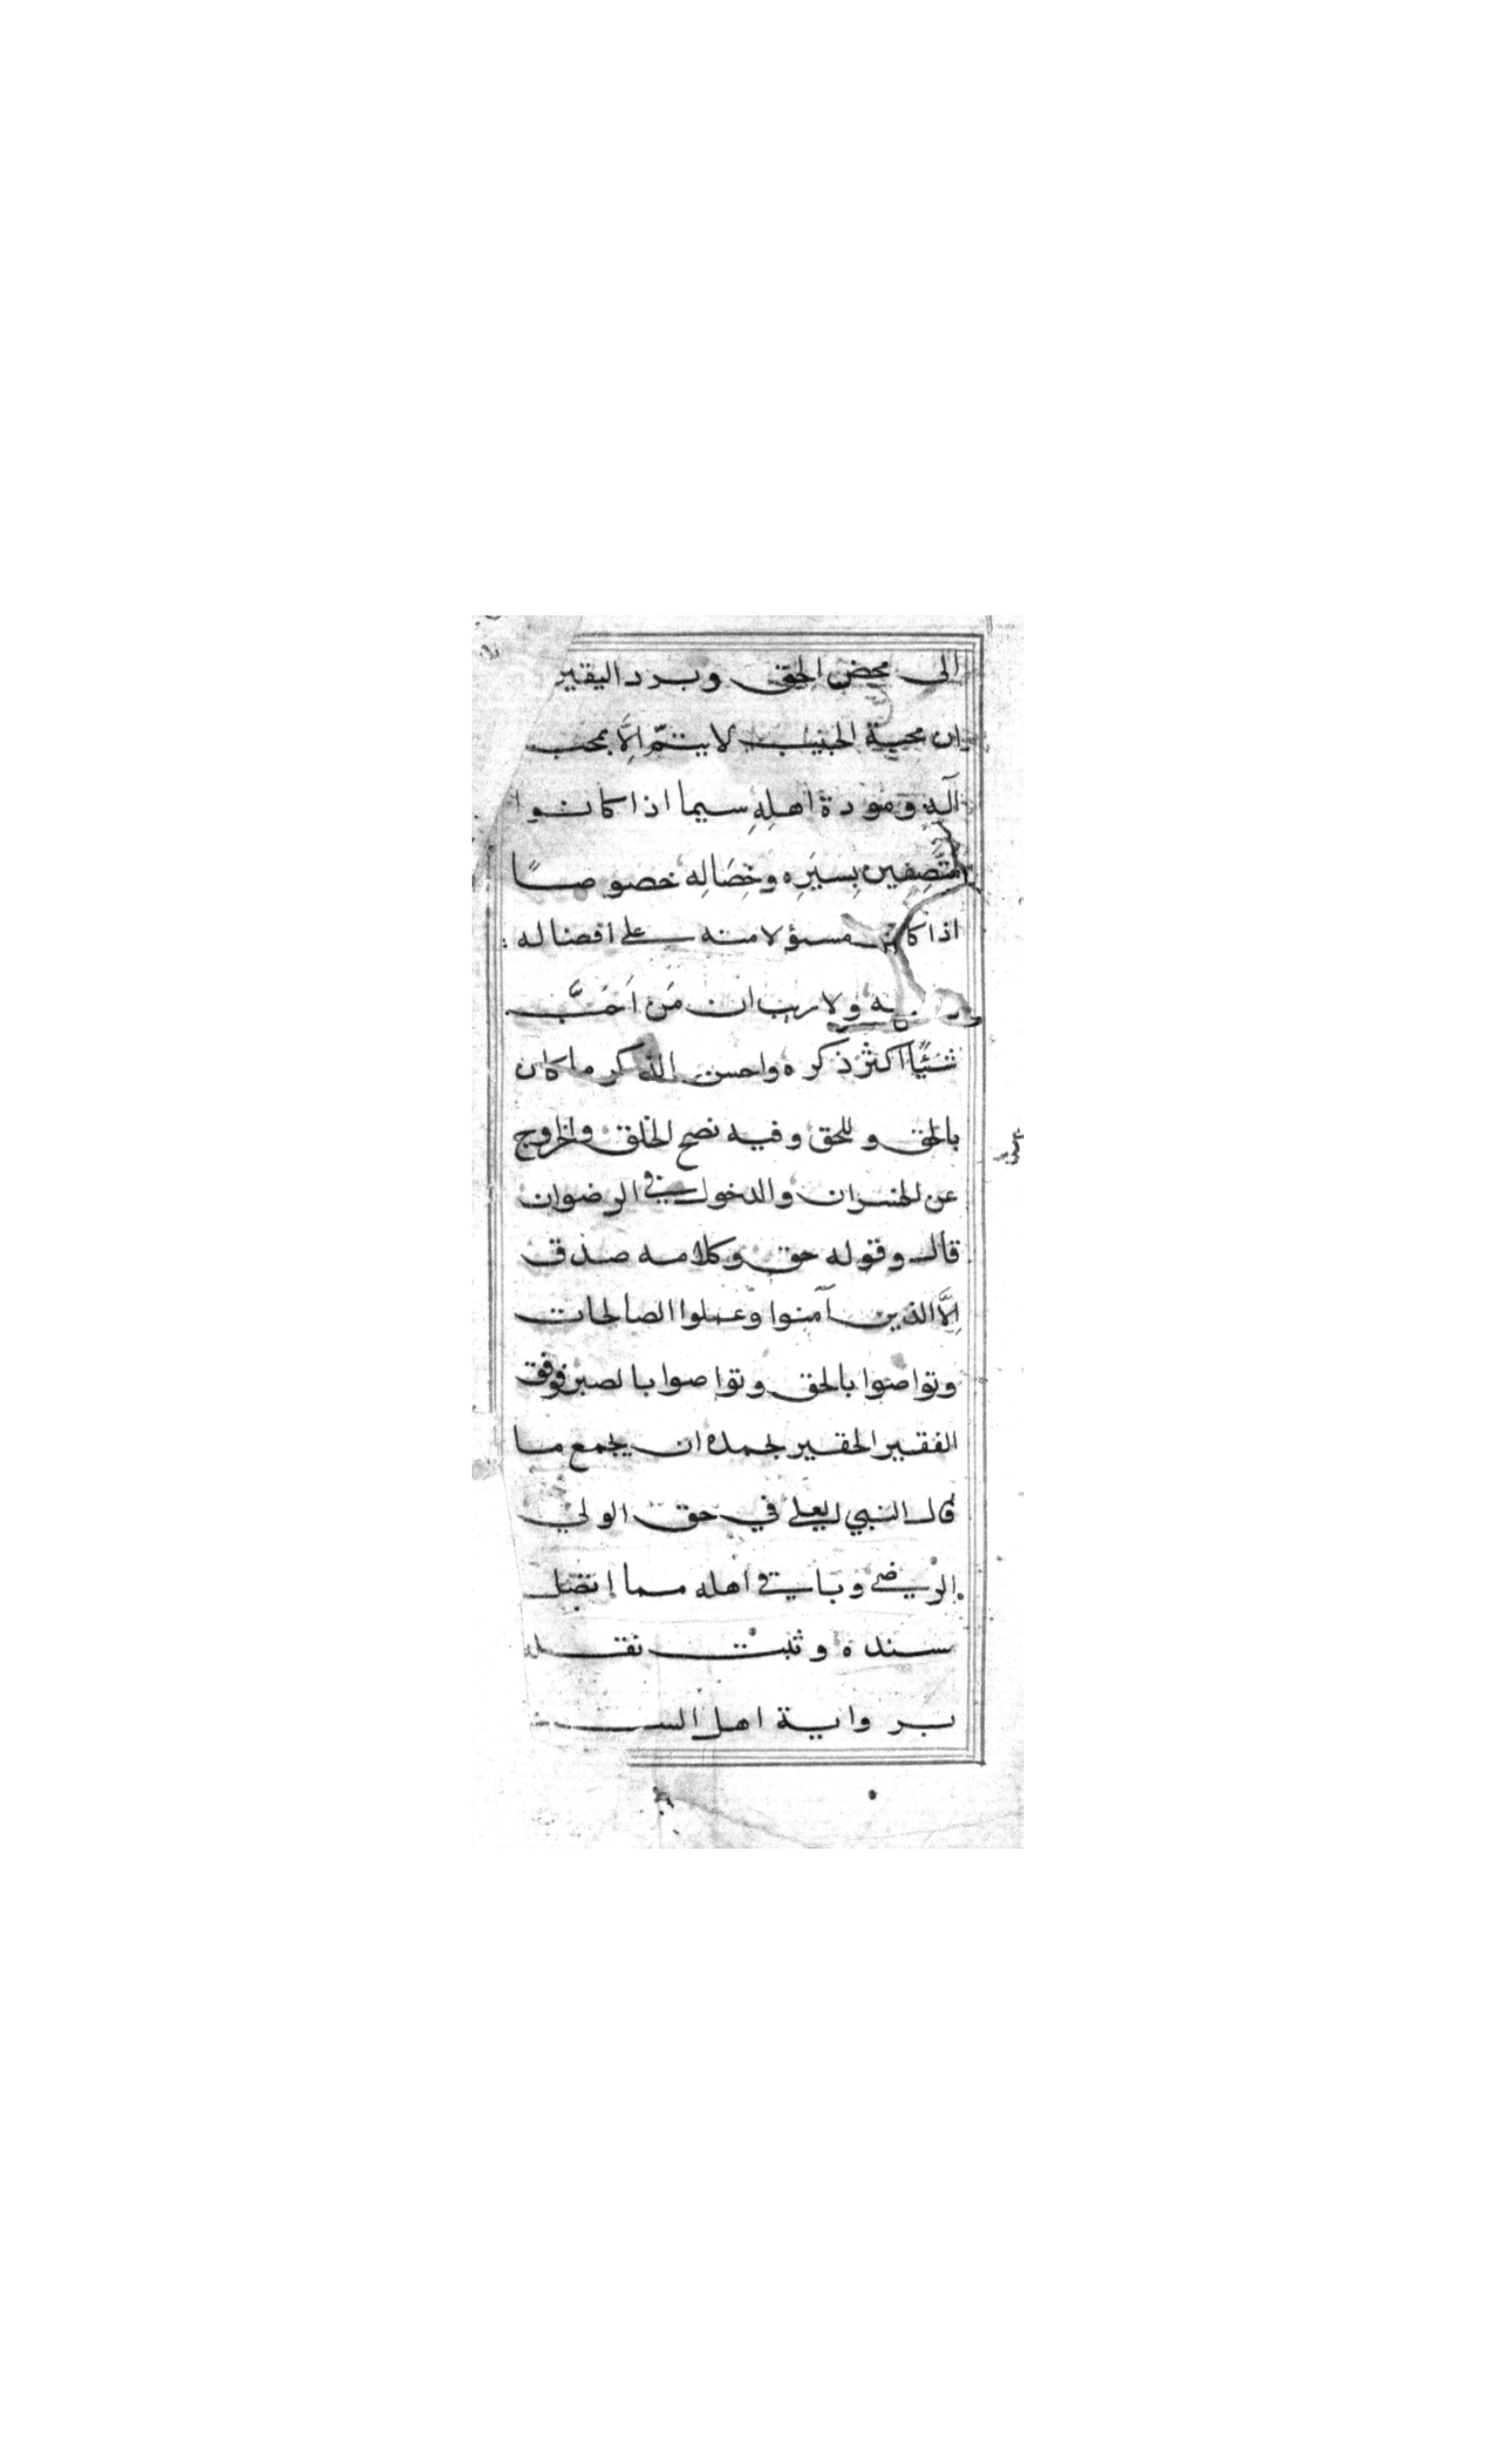 الى محض الحق وبرد اليقين
ان محبة الحبيب لا يتمّ الَّا بمحبـ
آلِه ومودة اهلِهِ سيما اذا كانوا
متَّصِفين بِسيَرِه وخِصَالِه خصوصًا
اذا كان مسؤلا منه على افضاله
ولا ريب ان مَن اَحَبَّ
شَيْئًا اكثرَ ذكره واحسن الذكر ما كان
بالحق وللحق وفيه نصح الخلق والخروج
عن الخسران والدخول في الرضوان
قال وقوله حق وكلامه صدق
اِلَّا الذين آمنوا وعملوا الصالحات
وتواصوا بالحق وتواصوا بالصبر فوفق
الفقير الحقير لجمده ان يجمع ما
قال النبي العلي في حق الولي
الرضي وباقي اهله مما اتصل
سنده وثبت نقله
برواية اهل السنـ